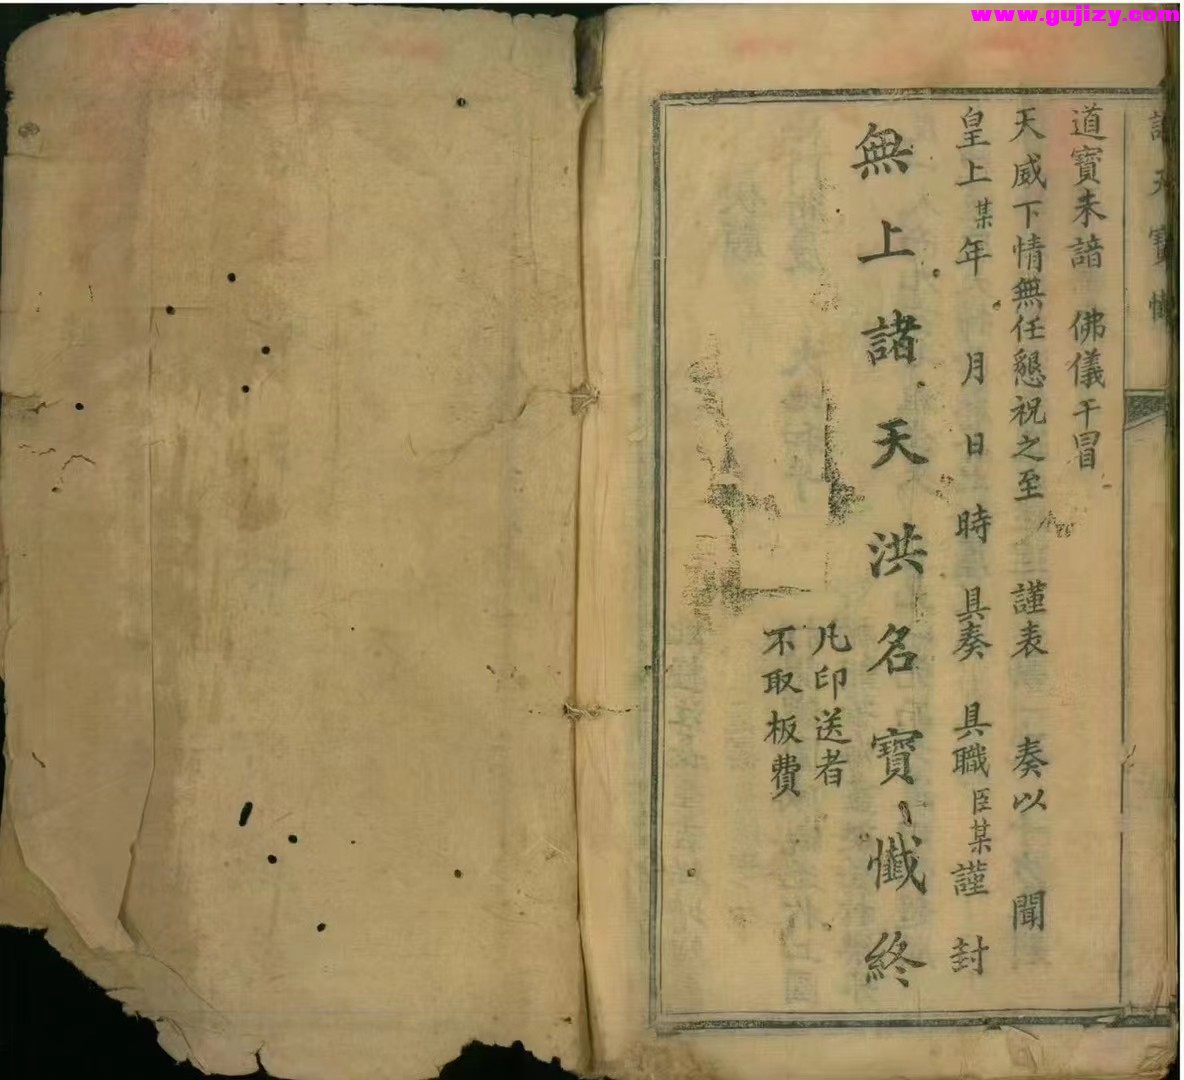 www.gujizy.com
諸天寶懺
道寶未諳 佛儀干冒
天威下情無任懇祝之至 謹表 奏以 聞
皇上某年 月 日 時 具奏 具職臣某謹 封
無上諸天洪名寶懺終
凡印送者
不取板費